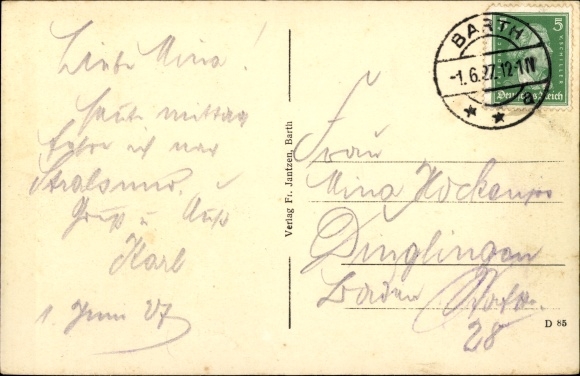 Liebe Mina!
Heute mittag
fahre ich nach
Stralsund.
Gruß u. Kuß
Karl
1. Juni 27
Verlag Fr. Jantzen, Barth
BARTH
-1.6.27.12-1N
a
5
FR. V. SCHILLER
Deutsches Reich
Frau
Mina
Dinglingen
Baden
28
D 85